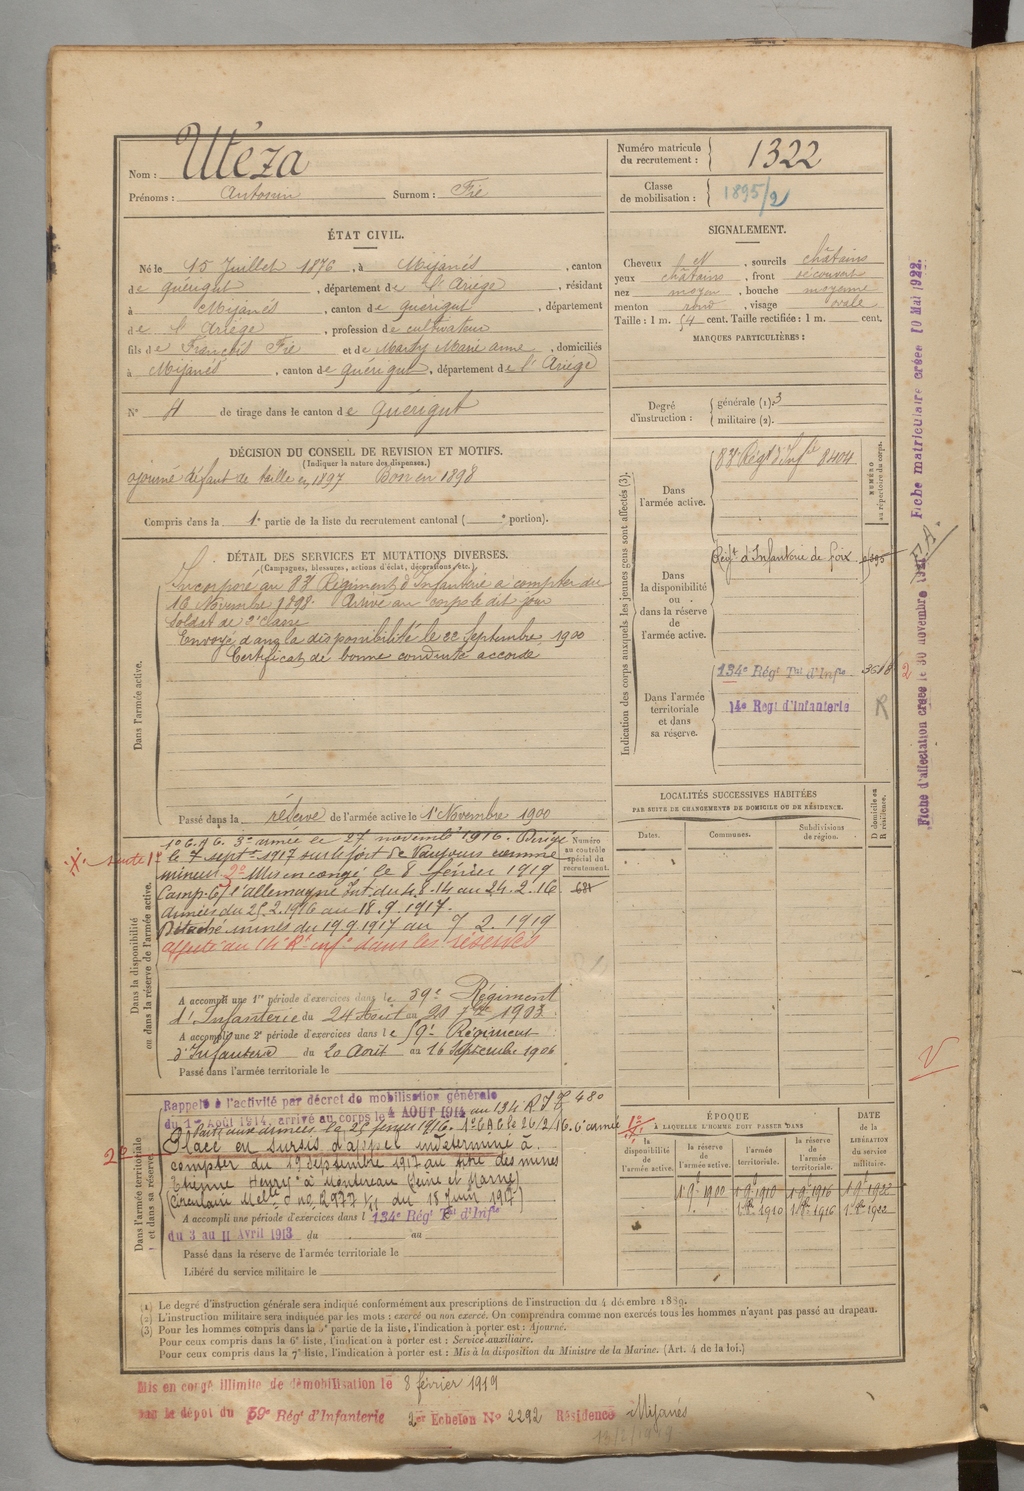 Nom : Utéza
Prénoms : Antonin Surnom : Fié
Numéro matricule du recrutement : 1322
Classe de mobilisation : 1895/2
ÉTAT CIVIL.
Né le 15 Juillet 1876, à Mijanès, canton
de Quérigut, département de l'Ariège, résidant
à Mijanès, canton de Quérigut, département
de l'Ariège, profession de cultivateur
fils de François Fié et de Marty Marie anne, domiciliés
à Mijanès, canton de Quérigut, département de l'Ariège
N° 4 de tirage dans le canton de Quérigut
SIGNALEMENT.
Cheveux , sourcils châtains
yeux châtains, front découvert
nez moyen, bouche moyenne
menton rond, visage ovale
Taille : 1 m. 54 cent. Taille rectifiée : 1 m. cent.
MARQUES PARTICULIÈRES :
Degré d'instruction : générale (1). 3
militaire (2).
DÉCISION DU CONSEIL DE REVISION ET MOTIFS.
(Indiquer la nature des dispenses.)
ajourné défaut de taille en 1897 Bon en 1898
Compris dans la 1e partie de la liste du recrutement cantonal ( e portion).
DÉTAIL DES SERVICES ET MUTATIONS DIVERSES.
(Campagnes, blessures, actions d'éclat, décorations, etc.)
Dans l'armée active.
Incorporé au 83e Régiment d'Infanterie à compter du
16 Novembre 1898. Arrivé au corps le dit jour
Soldat de 2e classe
Envoyé dans la disponibilité le 22 Septembre 1900
Certificat de bonne conduite accordé
Passé dans la réserve de l'armée active le 1er Novembre 1900
Indication des corps auxquels les jeunes gens sont affectés (3).
NUMÉRO au répertoire du corps.
Dans l'armée active.
83e Régt d'Infie 8404
Dans la disponibilité ou dans la réserve de l'armée active.
Régt d'Infanterie de Foix
Dans l'armée territoriale et dans sa réserve.
134e Régt Tal d'Infie 3618
14e Regt d'Infanterie R
LOCALITÉS SUCCESSIVES HABITÉES
PAR SUITE DE CHANGEMENTS DE DOMICILE OU DE RÉSIDENCE.
Dates. Communes. Subdivisions de région. D domicile ou R résidence.
Dans la disponibilité ou dans la réserve de l'armée active.
Numéro au contrôle spécial du recrutement.
1er G.A.G. 3e armée le 27 novembre 1916. Dirigé
le 7 septe 1917 sur le fort de Vaujours comme
mineur 2° Mis en congé le 8 février 1919
Camp. C/ l'allemagne Int. du 4.8.14 au 24.2.16
armées du 25.2.1916 au 18.9.1917.
Détaché mines du 19.9.1917 au 7.2.1919
affecté au 14e Rt infie dans les réserves
A accompli une 1re période d'exercices dans le 59e Régiment
d'Infanterie du 24 Août au 20 7bre 1903.
A accompli une 2e période d'exercices dans le 59e Régiment
d'Infanterie du 20 Août au 16 Septembre 1906
Passé dans l'armée territoriale le
Dans l'armée territoriale et dans sa réserve.
Rappelé à l'activité par décret de mobilisation générale
du 1er AOUT 1914, arrivé au corps le 4 AOUT 1914 au 134 R I T 480
Parti aux armées le 25 février 1916. 1er G A G le 26/2/16. 6e armée
Placé en sursis d'appel indéterminé à
compter du 19 septembre 1917 au titre des mines
Etienne Henry à Montereau (Seine et Marne)
(Circulaire Melle no 2977 K/1 du 15 Juin 1917)
A accompli une période d'exercices dans l 134e Régt Tal d'Infie
du 3 au 11 Avril 1913 du au
Passé dans la réserve de l'armée territoriale le
Libéré du service militaire le
ÉPOQUE
A LAQUELLE L'HOMME DOIT PASSER DANS
la disponibilité de l'armée active. la réserve de l'armée active. l'armée territoriale. la réserve de l'armée territoriale.
DATE de la LIBÉRATION du service militaire.
1 9bre 1900 1 9bre 1910 1 9bre 1916 1 9bre 1922
1er 8bre 1910 1er 8bre 1916 1er 8bre 1922
(1) Le degré d'instruction générale sera indiqué conformément aux prescriptions de l'instruction du 4 décembre 1889.
(2) L'instruction militaire sera indiquée par les mots : exercé ou non exercé. On comprendra comme non exercés tous les hommes n'ayant pas passé au drapeau.
(3) Pour les hommes compris dans la 5e partie de la liste, l'indication à porter est : Ajourné.
Pour ceux compris dans la 6e liste, l'indication à porter est : Service auxiliaire.
Pour ceux compris dans la 7e liste, l'indication à porter est : Mis à la disposition du Ministre de la Marine. (Art. 4 de la loi.)
Mis en congé illimité de démobilisation le 8 février 1919
par le dépôt du 59e Régt d'Infanterie 2er Echelon No 2292 Résidence Mijanès
18/2/1919
Fiche d'affectation créée le 30 novembre
Fiche matriculaire créée 10 Mai 1922.